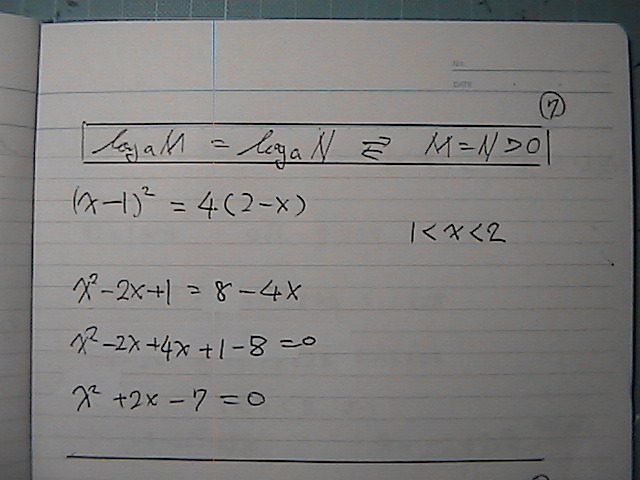 No.
DATE
⑦
log a M = log a N ⇄ M = N > 0
(x-1)² = 4(2-x)
1 < x < 2
x² - 2x + 1 = 8 - 4x
x² - 2x + 4x + 1 - 8 = 0
x² + 2x - 7 = 0